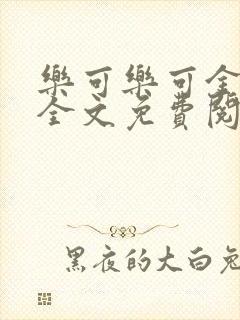 樂可樂可全
全文免費閱
黑夜的大白兔